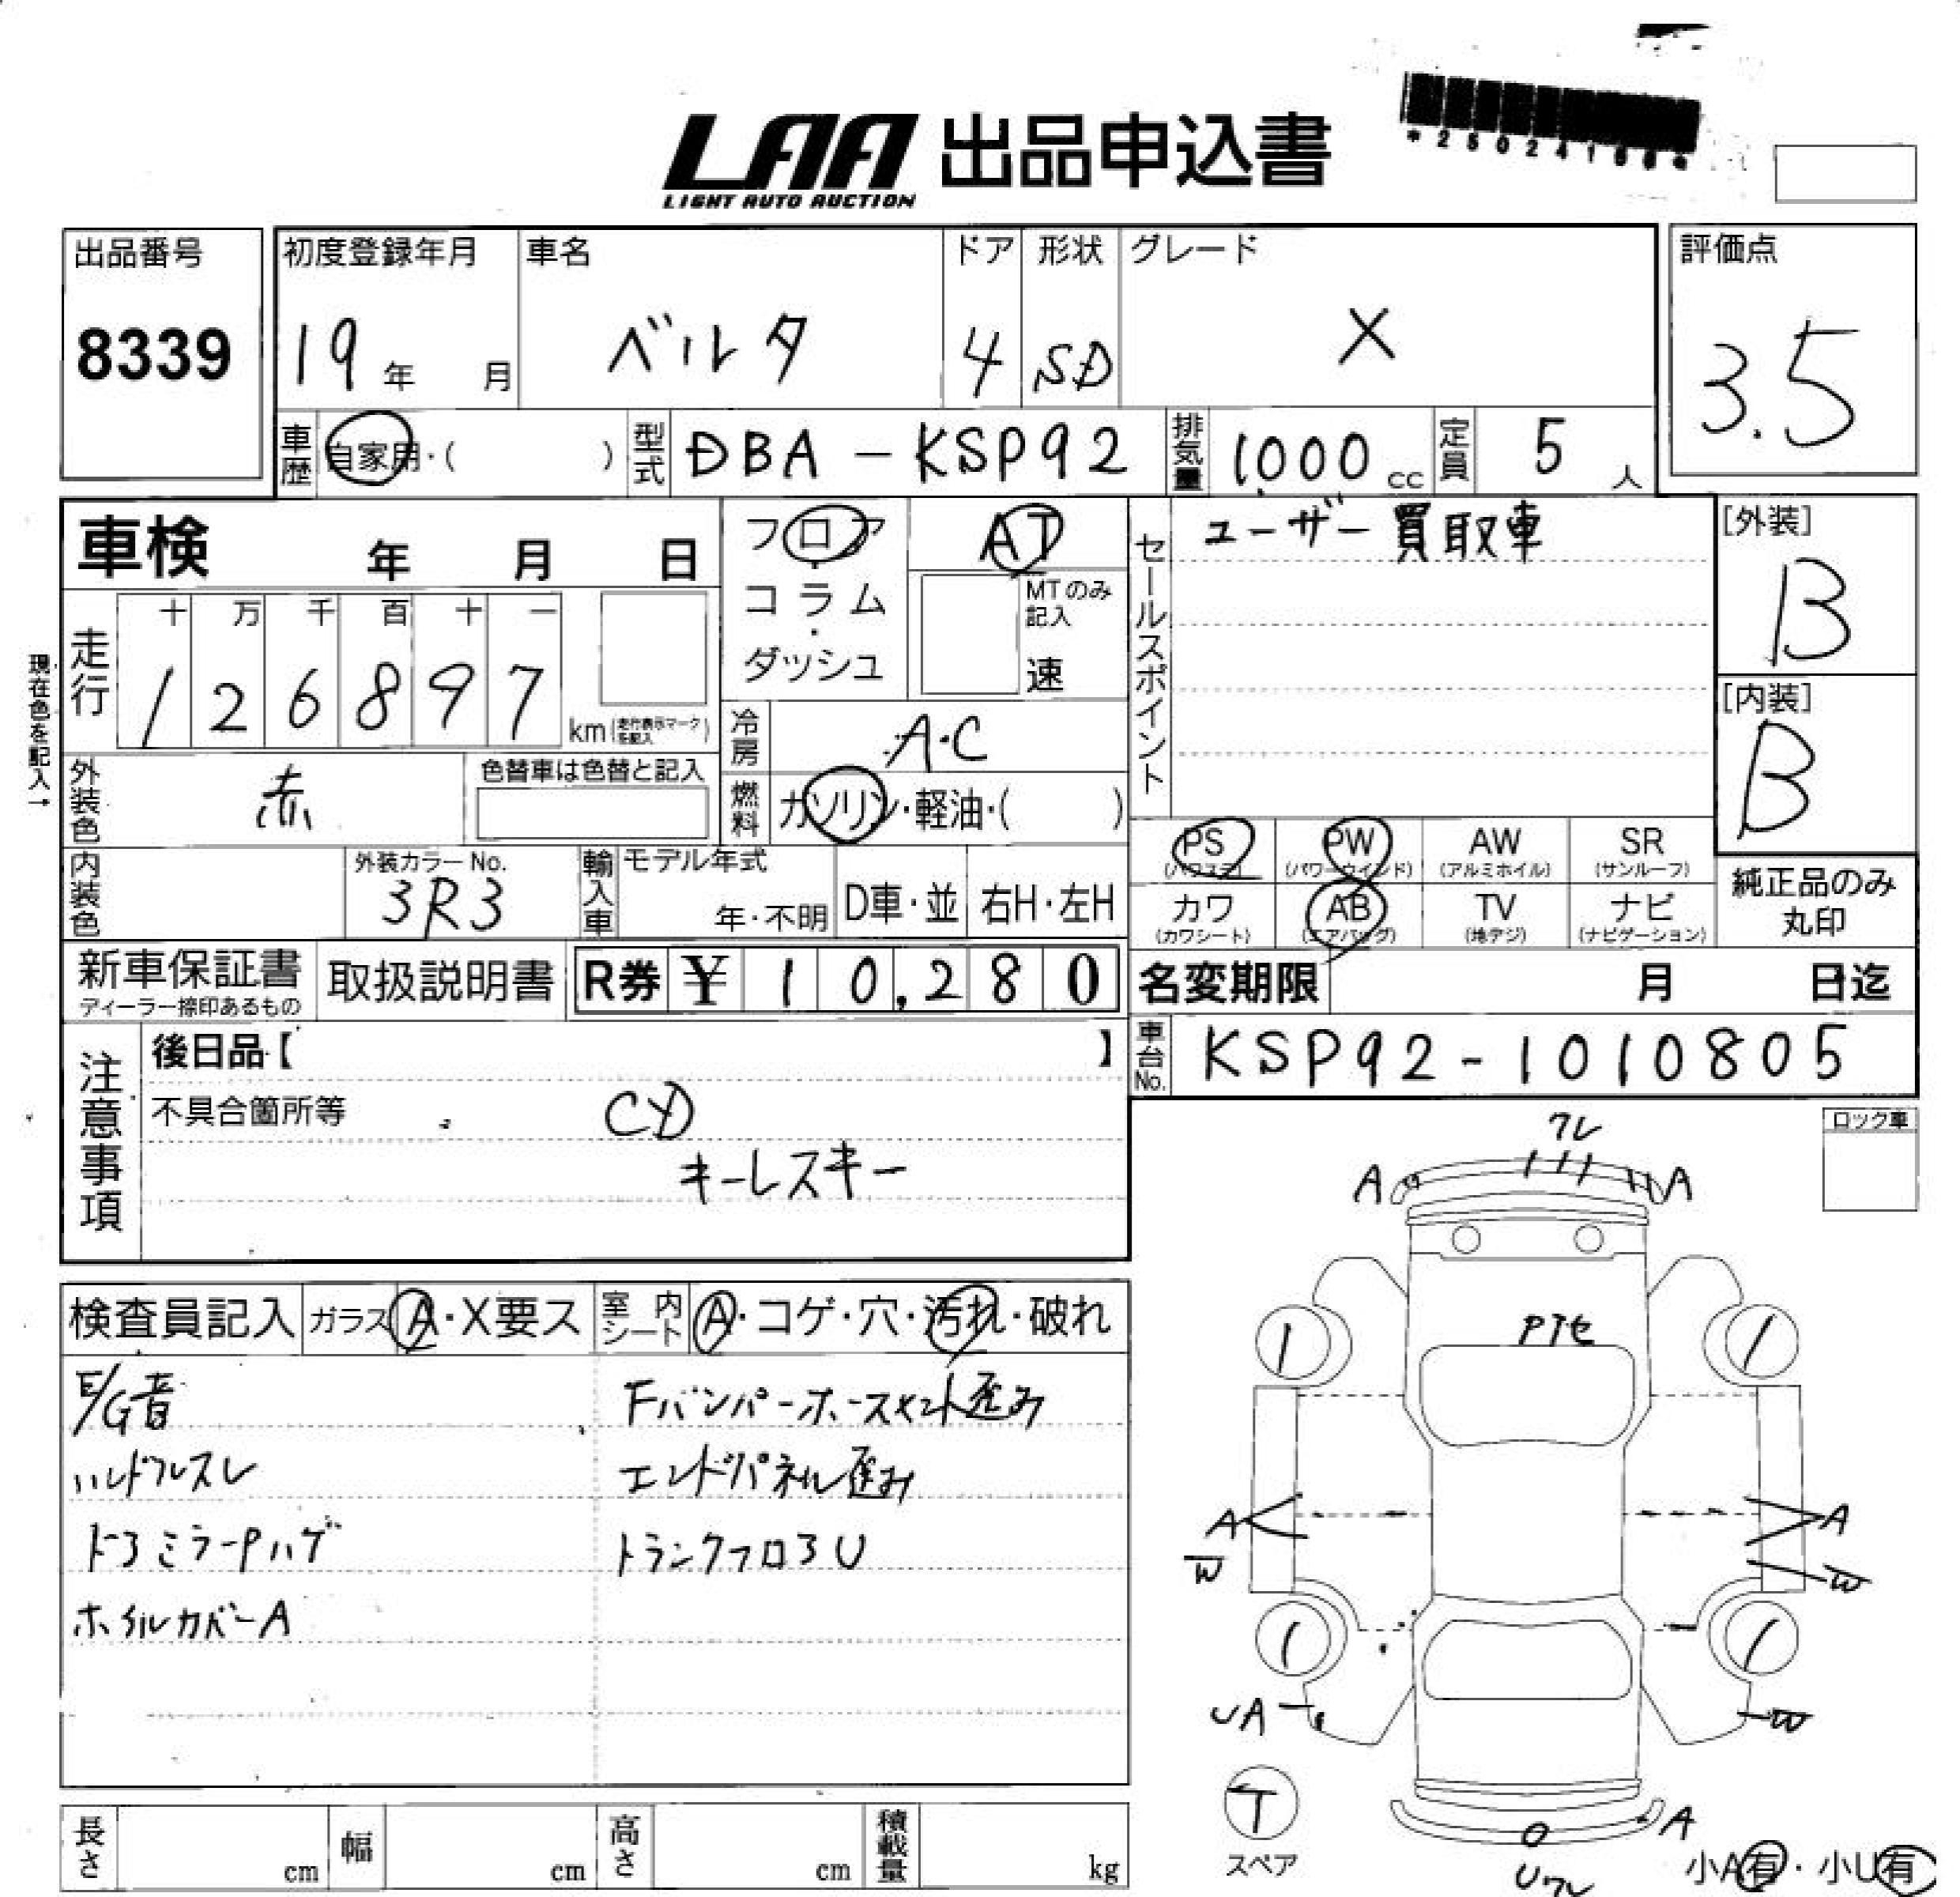 LAA 出品申込書
LIGHT AUTO AUCTION
出品番号
8339
初度登録年月
19年 月
車名
ベルタ
ドア
4
形状
SD
グレード
X
評価点
3.5
車歴
自家用・( )
型式
DBA-KSP92
排気量
1,000 cc
定員
5 人
車検 年 月 日
フロア
・
コラム
・
ダッシュ
AT
MTのみ
記入
速
セールスポイント
ユーザー買取車
[外装]
B
[内装]
B
現在色を記入→
走行
十 万 千 百 十 一
1 2 6 8 9 7
km (走行表示マークを記入)
冷房
A・C
外装色
赤
色替車は色替と記入
燃料
ガソリン・軽油・( )
PS
(パワステ)
PW
(パワーウインド)
AW
(アルミホイル)
SR
(サンルーフ)
カワ
(カワシート)
AB
(エアバッグ)
TV
(地デジ)
ナビ
(ナビゲーション)
純正品のみ
丸印
内装色
外装カラーNo.
3R3
輸入車
モデル年式
年・不明
D車・並
右H・左H
新車保証書
ディーラー捺印あるもの
取扱説明書
R券 ¥ 10,280
名変期限 月 日迄
車台No.
KSP92-1010805
注意事項
後日品【 】
不具合箇所等
CD
キーレスキー
ロック車
ワレ
A
A
検査員記入
ガラス A・X要ス
室内シート A・コゲ・穴・汚れ・破れ
E/G音
ハンドルスレ
ドアミラーPハゲ
ホイルカバーA
Fバンパーホースメント歪み
エンドパネル歪み
トランクフロアU
P下セ
A
W
A
W
UA
W
T
スペア
A
Uワレ
小A有・小U有
長さ cm
幅 cm
高さ cm
積載量 kg